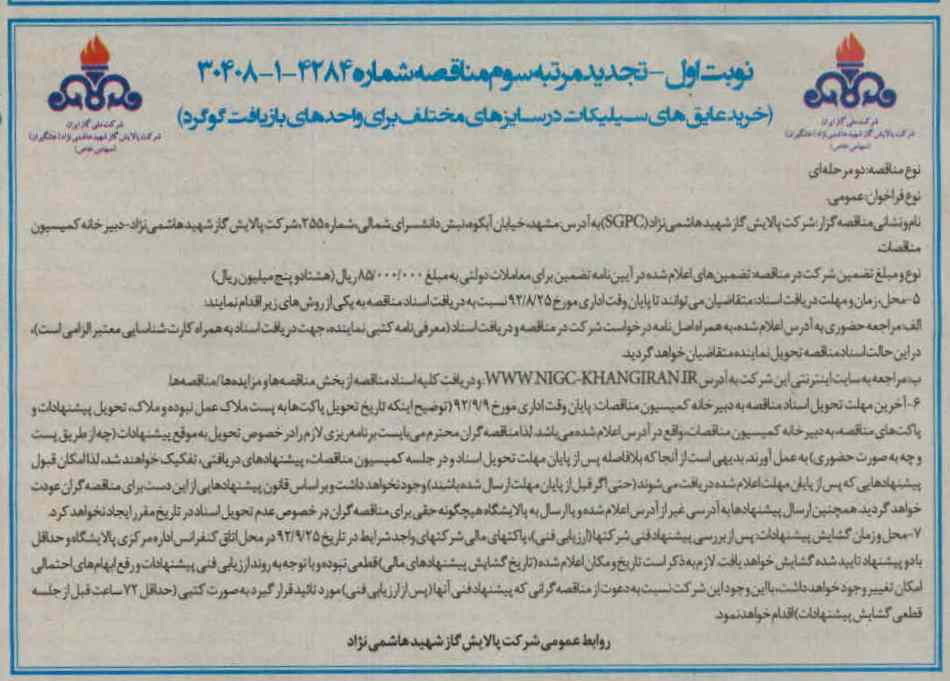 نوبت اول - تجدید مرتبه سوم مناقصه شماره ۴۲۸۴-۱-۳۰۴۰۸
(خرید عایق های سیلیکات در سایزهای مختلف برای واحدهای بازیافت گوگرد)
شرکت ملی گاز ایران
شرکت پالایش گاز شهید هاشمی نژاد (خانگیران)
(سهامی خاص)
شرکت ملی گاز ایران
شرکت پالایش گاز شهید هاشمی نژاد (خانگیران)
(سهامی خاص)
نوع مناقصه: دو مرحله ای
نوع فراخوان: عمومی.
نام و نشانی مناقصه گزار: شرکت پالایش گاز شهید هاشمی نژاد (SGPC) به آدرس: مشهد، خیابان آبکوه، نبش دانشسرای شمالی، شماره ۲۵۵، شرکت پالایش گاز شهید هاشمی نژاد- دبیرخانه کمیسیون
مناقصات.
نوع و مبلغ تضمین شرکت در مناقصه: تضمین های اعلام شده در آیین نامه تضمین برای معاملات دولتی به مبلغ ۸۵/۰۰۰/۰۰۰ ریال (هشتاد و پنج میلیون ریال)
۵- محل، زمان و مهلت دریافت اسناد: متقاضیان می توانند تا پایان وقت اداری مورخ ۹۲/۸/۲۵ نسبت به دریافت اسناد مناقصه به یکی از روش های زیر اقدام نمایند:
الف: مراجعه حضوری به آدرس اعلام شده، به همراه اصل نامه درخواست شرکت در مناقصه و دریافت اسناد (معرفی نامه کتبی نماینده، جهت دریافت اسناد به همراه کارت شناسایی معتبر الزامی است)،
در این حالت اسناد مناقصه تحویل نماینده متقاضیان خواهد گردید.
ب: مراجعه به سایت اینترنتی این شرکت به آدرس WWW.NIGC-KHANGIRAN.IR: و دریافت کلیه اسناد مناقصه از بخش مناقصه ها و مزایده ها/ مناقصه ها.
۶- آخرین مهلت تحویل اسناد مناقصه به دبیرخانه کمیسیون مناقصات: پایان وقت اداری مورخ ۹۲/۹/۹ (توضیح اینکه تاریخ تحویل پاکت ها به پست ملاک عمل نبوده و ملاک، تحویل پیشنهادات و
پاکت های مناقصه، به دبیرخانه کمیسیون مناقصات، واقع در آدرس اعلام شده می باشد. لذا مناقصه گران محترم می بایست برنامه ریزی لازم را در خصوص تحویل به موقع پیشنهادات (چه از طریق پست
و چه به صورت حضوری) به عمل آورند. بدیهی است از آنجا که بلافاصله پس از پایان مهلت تحویل اسناد و در جلسه کمیسیون مناقصات، پیشنهادهای دریافتی، تفکیک خواهند شد، لذا امکان قبول
پیشنهادهایی که پس از پایان مهلت اعلام شده دریافت می شوند (حتی اگر قبل از پایان مهلت ارسال شده باشند) وجود نخواهد داشت و بر اساس قانون پیشنهادهایی از این دست برای مناقصه گران عودت
خواهد گردید. همچنین ارسال پیشنهادها به آدرسی غیر از آدرس اعلام شده و یا ارسال به پالایشگاه هیچگونه حقی برای مناقصه گران در خصوص عدم تحویل اسناد در تاریخ مقرر ایجاد نخواهد کرد.
۷- محل و زمان گشایش پیشنهادات: پس از بررسی پیشنهاد فنی شرکتها (ارزیابی فنی)، پاکتهای مالی شرکتهای واجد شرایط در تاریخ ۹۲/۹/۲۵ در محل اتاق کنفرانس اداره مرکزی پالایشگاه و حداقل
با دو پیشنهاد تایید شده گشایش خواهد یافت. لازم به ذکر است تاریخ و مکان اعلام شده (تاریخ گشایش پیشنهادهای مالی) قطعی نبوده و با توجه به روند ارزیابی فنی پیشنهادات و رفع ابهام های احتمالی
امکان تغییر وجود خواهد داشت، با این وجود این شرکت نسبت به دعوت از مناقصه گرانی که پیشنهاد فنی آنها (پس از ارزیابی فنی) مورد تائید قرار گیرد به صورت کتبی (حداقل ۷۲ ساعت قبل از جلسه
قطعی گشایش پیشنهادات) اقدام خواهد نمود.
روابط عمومی شرکت پالایش گاز شهید هاشمی نژاد